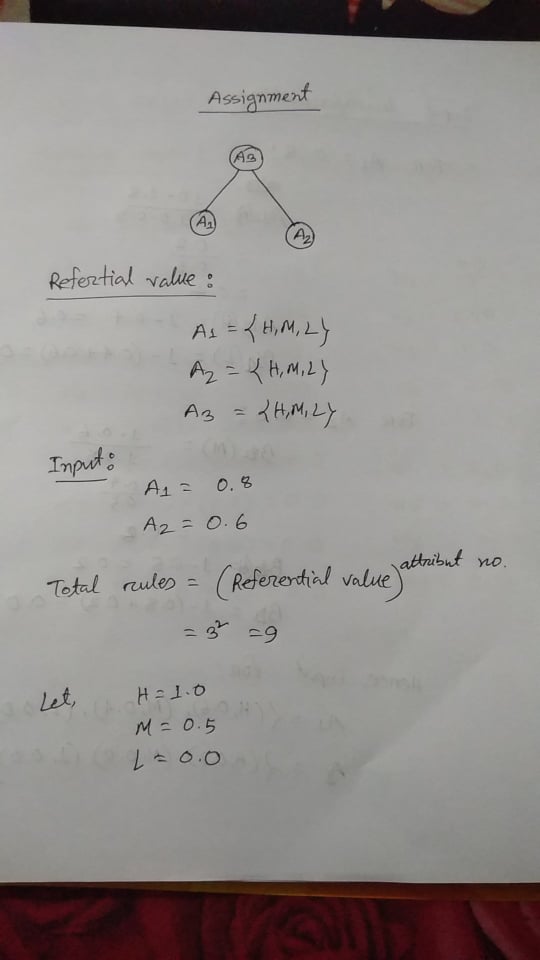 Assignment
A3
A1
A2
Refertial value :
A1 = {H, M, L}
A2 = {H, M, L}
A3 = {H, M, L}
Input :
A1 = 0.8
A2 = 0.6
Total rules = (Referential value)^attribut no.
= 3² = 9
Let, H = 1.0
M = 0.5
L = 0.0